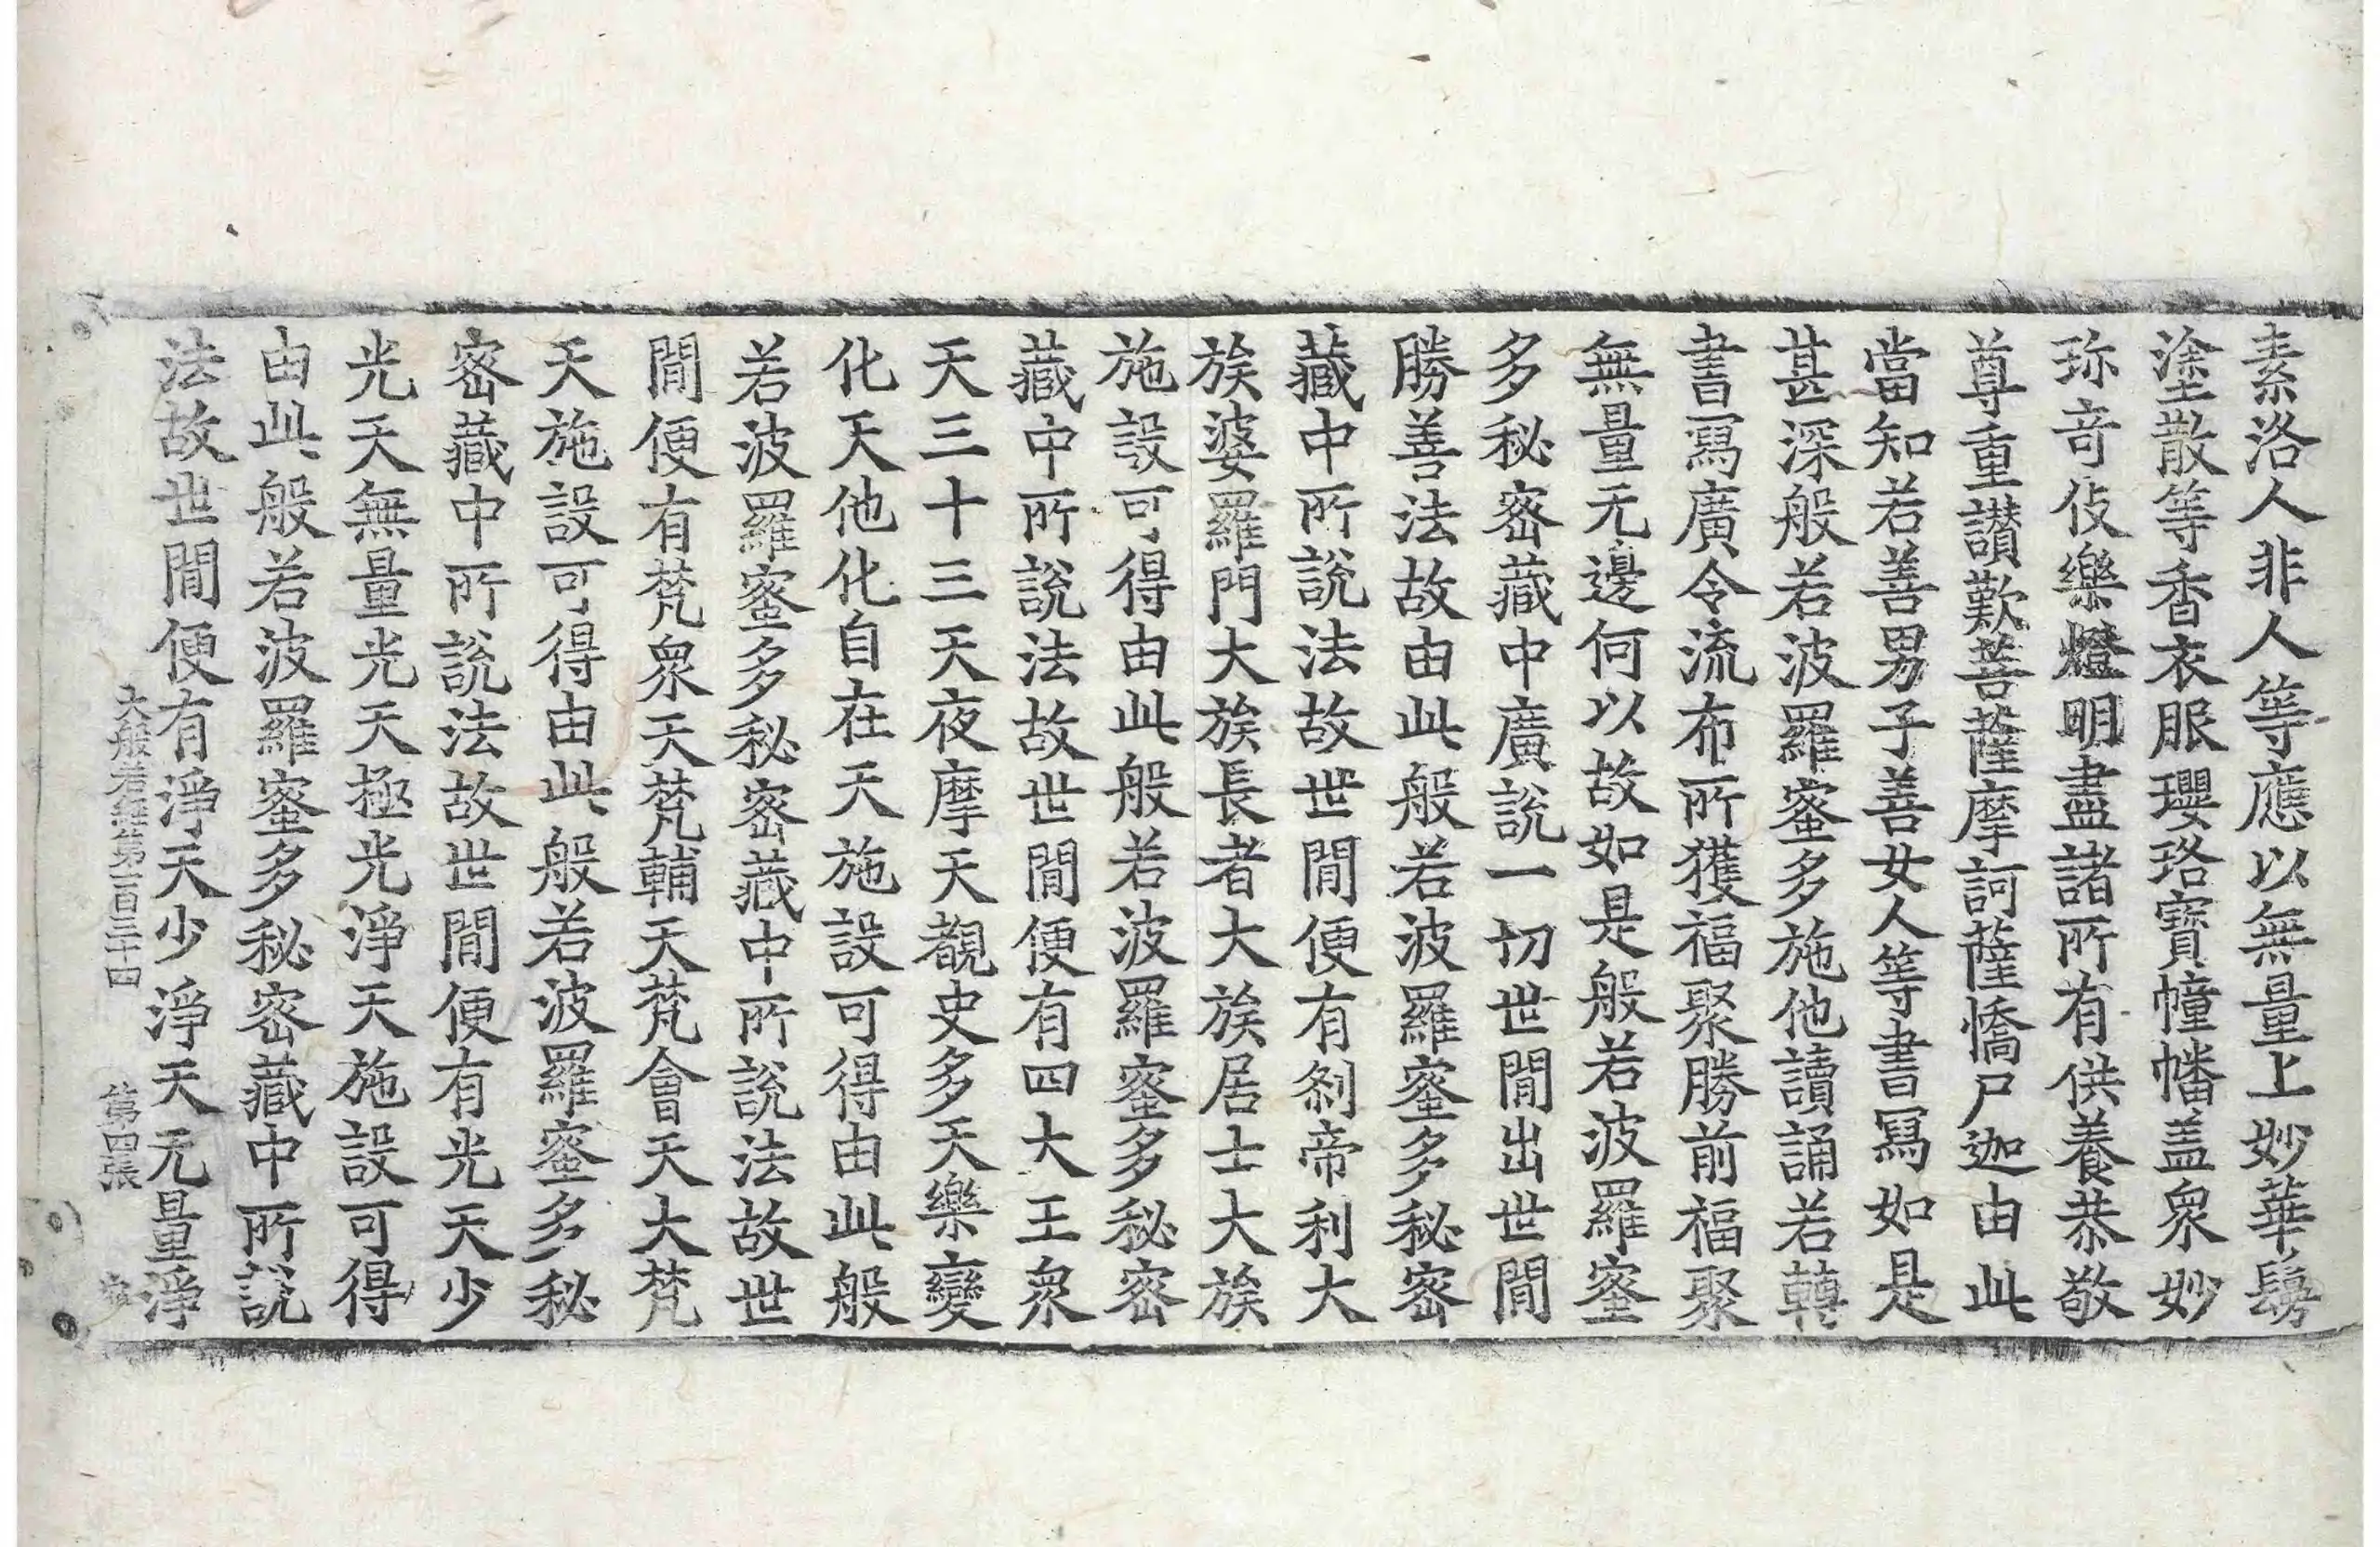 素洛人非人等應以無量上妙華鬘
塗散等香衣服瓔珞寶幢幡盖衆妙
珎奇伎樂燈明盡諸所有供養恭敬
尊重讃歎菩薩摩訶薩憍尸迦由此
當知若善男子善女人等書寫如是
甚深般若波羅蜜多施他讀誦若轉
書寫廣令流布所獲福聚勝前福聚
無量无邊何以故如是般若波羅蜜
多秘密藏中廣說一切世間出世間
勝善法故由此般若波羅蜜多秘密
藏中所說法故世間便有刹帝利大
族婆羅門大族長者大族居士大族
施設可得由此般若波羅蜜多秘密
藏中所說法故世間便有四大王衆
天三十三天夜摩天覩史多天樂變
化天他化自在天施設可得由此般
若波羅蜜多秘密藏中所說法故世
間便有梵衆天梵輔天梵會天大梵
天施設可得由此般若波羅蜜多秘
密藏中所說法故世間便有光天少
光天無量光天極光淨天施設可得
由此般若波羅蜜多秘密藏中所說
法故世間便有淨天少淨天无量淨
大般若經第一百三十四 第四張